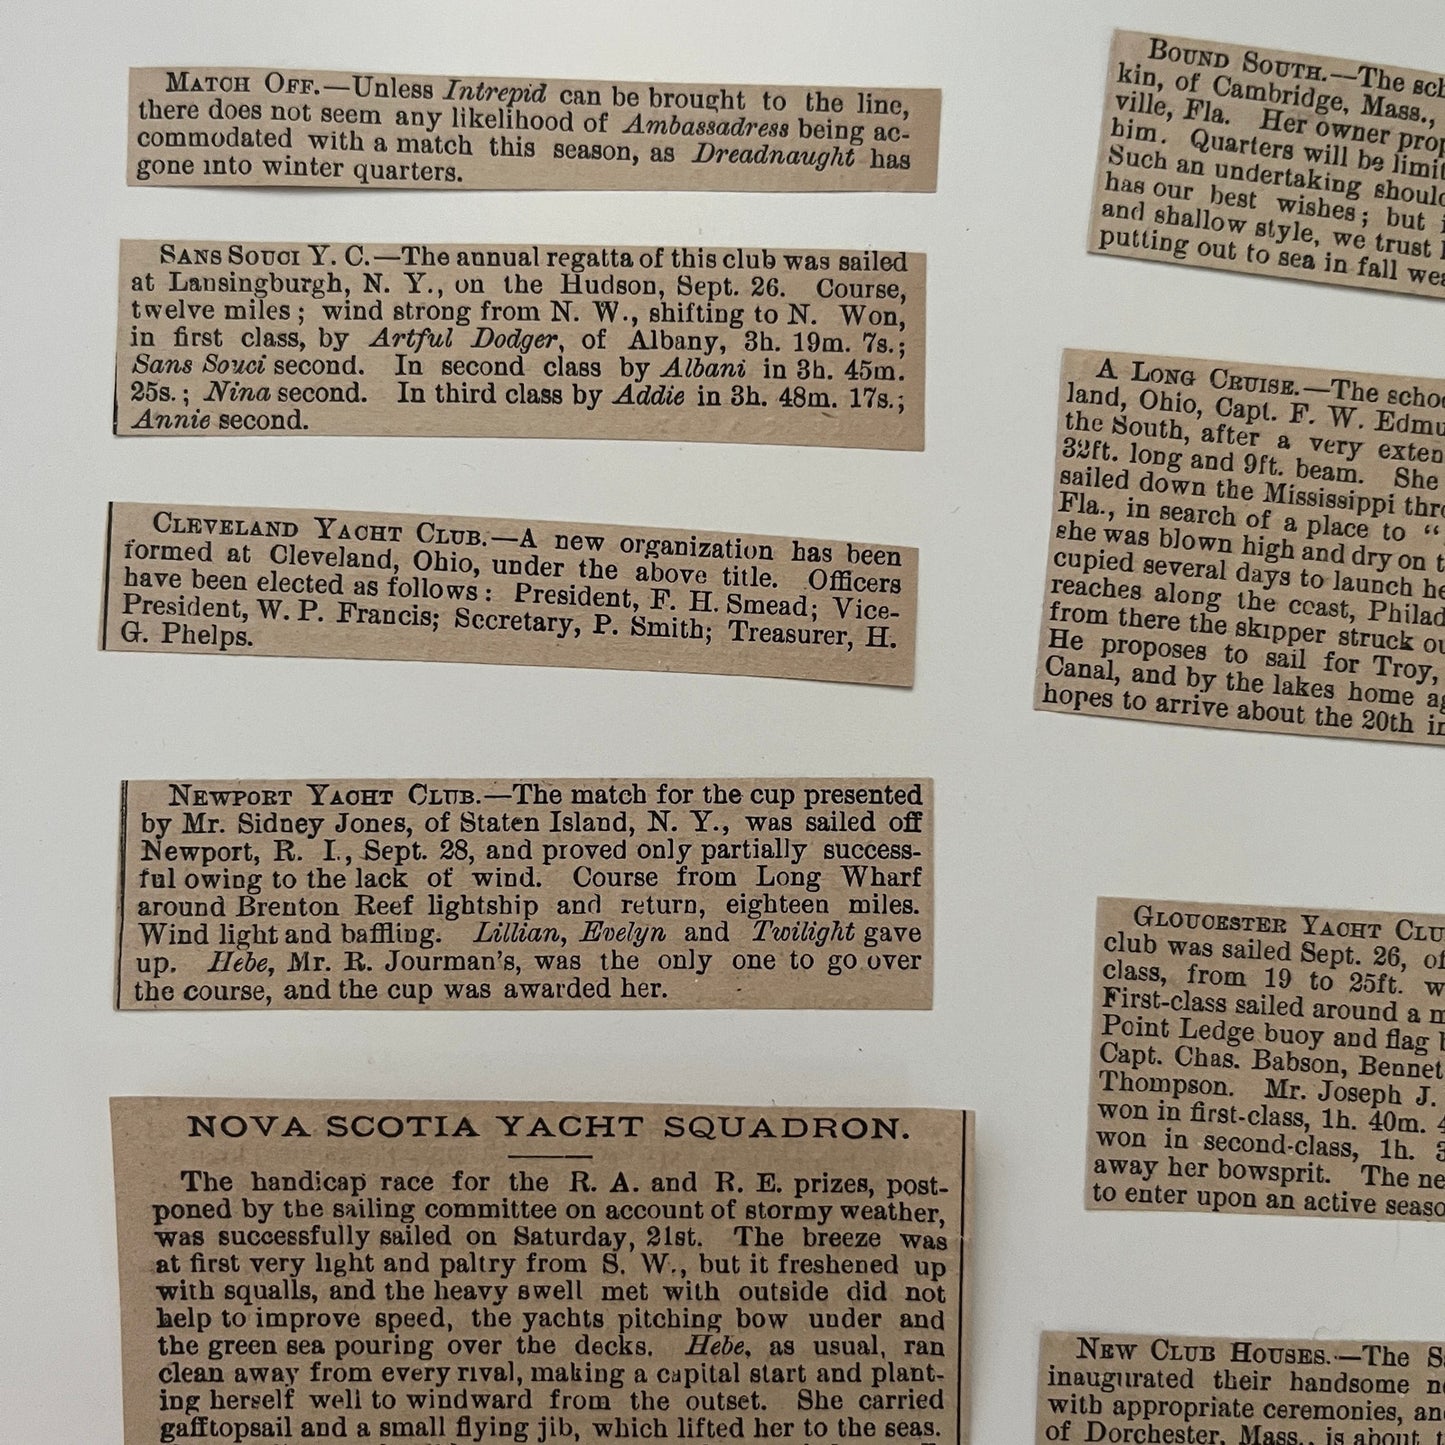 MATCH OFF.—Unless Intrepid can be brought to the line,
there does not seem any likelihood of Ambassadress being ac-
commodated with a match this season, as Dreadnaught has
gone into winter quarters.
SANS SOUCI Y. C.—The annual regatta of this club was sailed
at Lansingburgh, N. Y., on the Hudson, Sept. 26. Course,
twelve miles; wind strong from N. W., shifting to N. Won,
in first class, by Artful Dodger, of Albany, 3h. 19m. 7s.;
Sans Souci second. In second class by Albani in 3h. 45m.
25s.; Nina second. In third class by Addie in 3h. 48m. 17s.;
Annie second.
CLEVELAND YACHT CLUB.—A new organization has been
formed at Cleveland, Ohio, under the above title. Officers
have been elected as follows: President, F. H. Smead; Vice-
President, W. P. Francis; Secretary, P. Smith; Treasurer, H.
G. Phelps.
NEWPORT YACHT CLUB.—The match for the cup presented
by Mr. Sidney Jones, of Staten Island, N. Y., was sailed off
Newport, R. I., Sept. 28, and proved only partially success-
ful owing to the lack of wind. Course from Long Wharf
around Brenton Reef lightship and return, eighteen miles.
Wind light and baffling. Lillian, Evelyn and Twilight gave
up. Hebe, Mr. R. Jourman's, was the only one to go over
the course, and the cup was awarded her.
NOVA SCOTIA YACHT SQUADRON.
The handicap race for the R. A. and R. E. prizes, post-
poned by the sailing committee on account of stormy weather,
was successfully sailed on Saturday, 21st. The breeze was
at first very light and paltry from S. W., but it freshened up
with squalls, and the heavy swell met with outside did not
help to improve speed, the yachts pitching bow under and
the green sea pouring over the decks. Hebe, as usual, ran
clean away from every rival, making a capital start and plant-
ing herself well to windward from the outset. She carried
gafftopsail and a small flying jib, which lifted her to the seas.
BOUND SOUTH.—The sch
kin, of Cambridge, Mass.,
ville, Fla. Her owner prop
him. Quarters will be limit
Such an undertaking should
has our best wishes; but i
and shallow style, we trust
putting out to sea in fall wea
A LONG CRUISE.—The schoo
land, Ohio, Capt. F. W. Edmu
the South, after a very exten
32ft. long and 9ft. beam. She
sailed down the Mississippi thro
Fla., in search of a place to "
she was blown high and dry on t
cupied several days to launch he
reaches along the coast, Philad
from there the skipper struck ou
He proposes to sail for Troy,
Canal, and by the lakes home ag
hopes to arrive about the 20th in
GLOUCESTER YACHT CLU
club was sailed Sept. 26, of
class, from 19 to 25ft. w
First-class sailed around a m
Point Ledge buoy and flag b
Capt. Chas. Babson, Bennet
Thompson. Mr. Joseph J.
won in first-class, 1h. 40m. 4
won in second-class, 1h. 3
away her bowsprit. The ne
to enter upon an active seaso
NEW CLUB HOUSES.—The S
inaugurated their handsome n
with appropriate ceremonies, an
of Dorchester, Mass., is about t